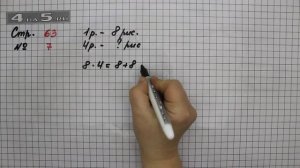 4APS.RU
Стр. 63
№ 7
1р. - 8 рис.
4р. - ? рис
8 · 4 = 8 + 8